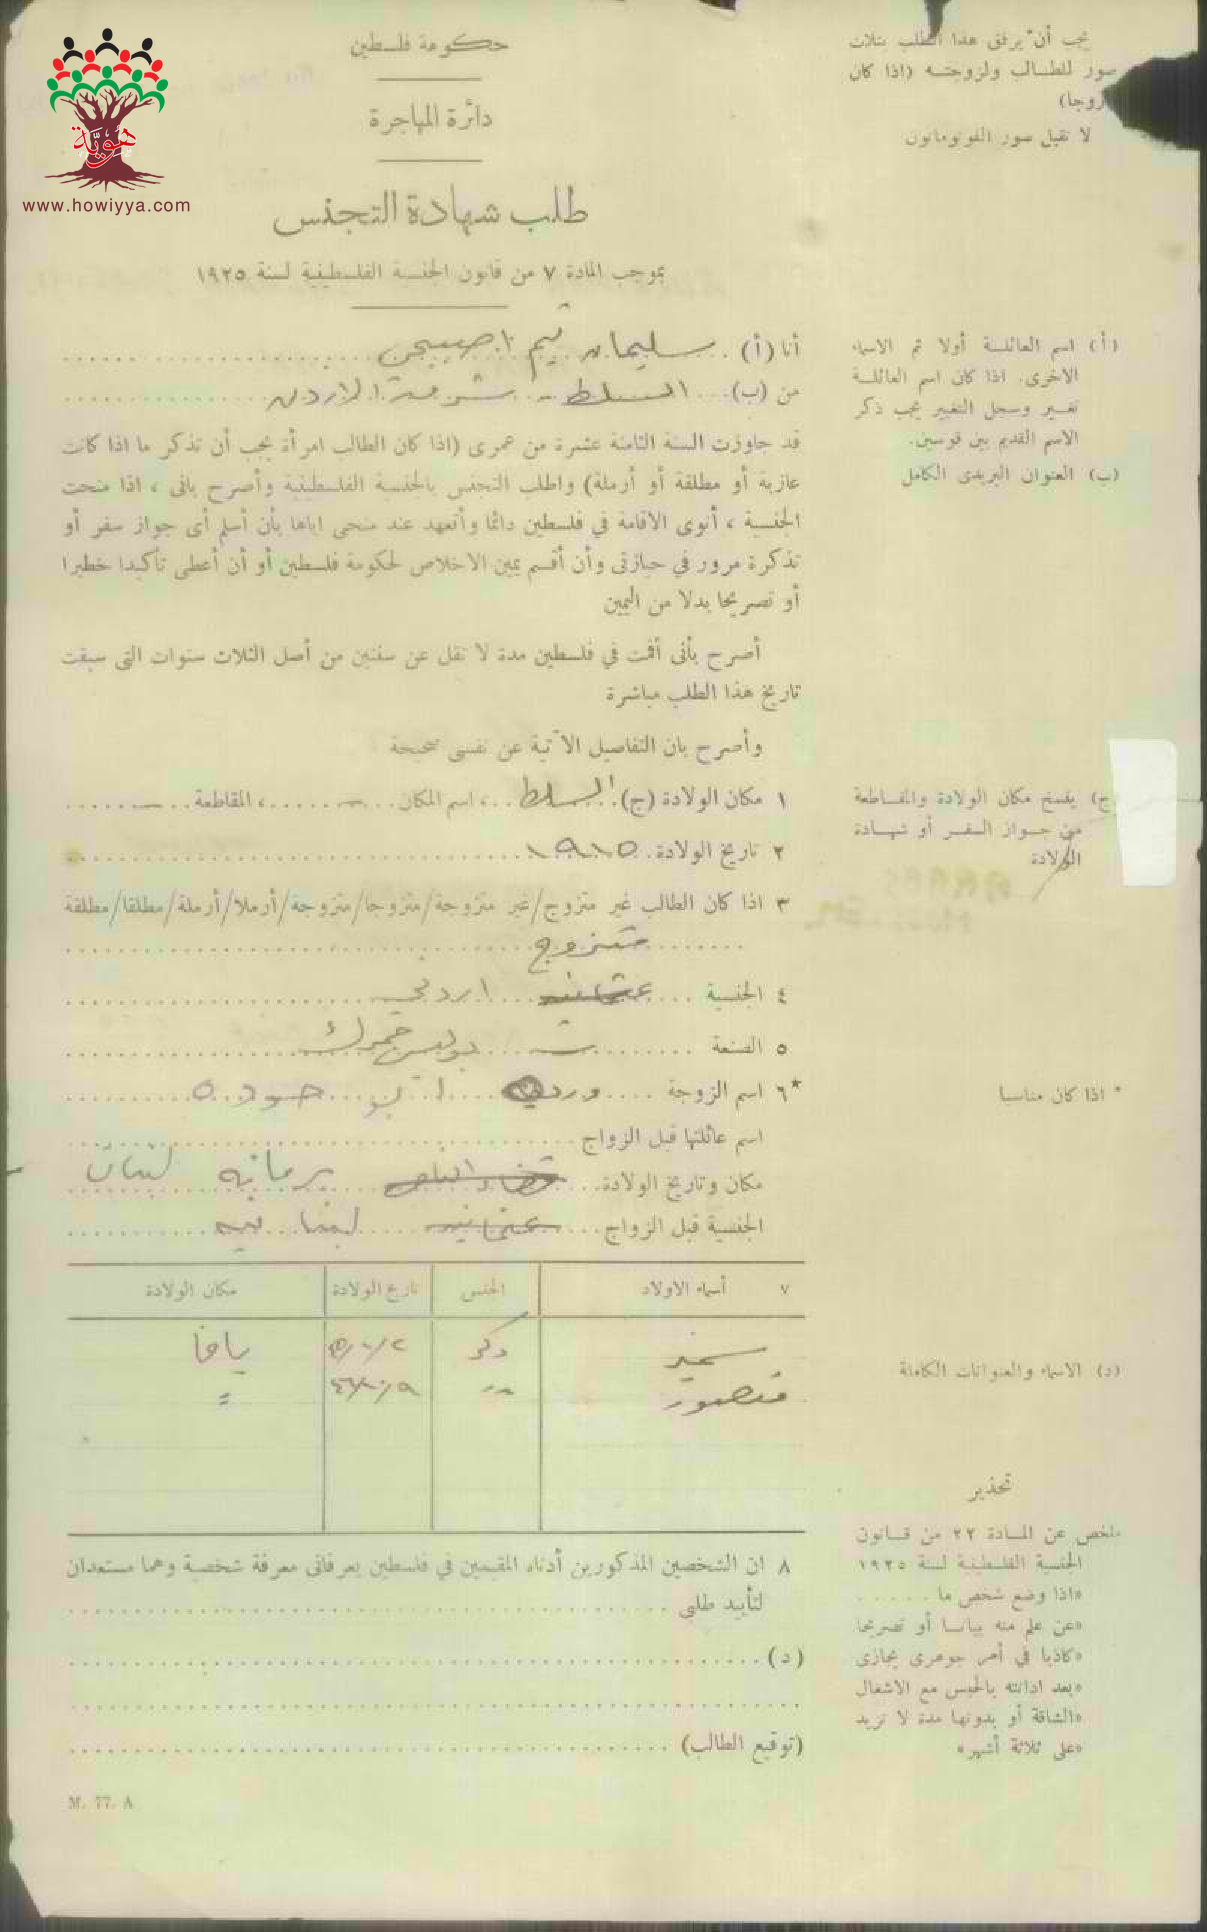 هوية
www.howiyya.com
حكومة فلسطين
دائرة المهاجرة
طلب شهادة التجنس
بموجب المادة ٧ من قانون الجنسية الفلسطينية لسنة ١٩٢٥
يجب أن يرفق هذا الطلب بثلاث
صور للطالب ولزوجته (اذا كان
زوجا)
لا تقبل صور الفوتوماتون
أنا (أ) سليمان
من (ب) السلط - شرق الاردن
قد جاوزت السنة الثامنة عشرة من عمرى (اذا كان الطالب امرأة يجب أن تذكر ما اذا كانت
عازبة أو مطلقة أو أرملة) واطلب التجنس بالجنسية الفلسطينية وأصرح بانى ، اذا منحت
الجنسية ، أنوى الاقامة في فلسطين دائما وأتعهد عند منحى اياها بأن أسلم أى جواز سفر أو
تذكرة مرور في حيازتى وأن أقسم يمين الاخلاص لحكومة فلسطين أو أن أعطى تأكيدا خطيرا
أو تصريحا بدلا من اليمين
أصرح بأنى أقمت في فلسطين مدة لا تقل عن سنتين من أصل الثلاث سنوات التى سبقت
تاريخ هذا الطلب مباشرة
وأصرح بان التفاصيل الآتية عن نفسى صحيحة
١ مكان الولادة (ج) السلط ، اسم المكان - ، المقاطعة -
٢ تاريخ الولادة ١٩١٥
٣ اذا كان الطالب غير متزوج/غير متزوجة/متزوجا/متزوجة/أرملا/أرملة/مطلقا/مطلقة
متزوج
٤ الجنسية عثمانيه اردني
٥ الصنعة بوليس جمرك
*٦ اسم الزوجة
اسم عائلتها قبل الزواج
مكان وتاريخ الولادة برمانه لبنان
الجنسية قبل الزواج عثمانيه لبنانيه
٧ أسماء الاولاد الجنس تاريخ الولادة مكان الولادة
سمير ذكر يافا
منصور " "
٨ ان الشخصين المذكورين أدناه المقيمين في فلسطين يعرفانى معرفة شخصية وهما مستعدان
لتأييد طلبى
(د)
(توقيع الطالب)
M. 77. A
(أ) اسم العائلة أولا ثم الاسماء
الاخرى. اذا كان اسم العائلة
تغير وسجل التغيير يجب ذكر
الاسم القديم بين قوسين.
(ب) العنوان البريدى الكامل
ج) ينسخ مكان الولادة والمقاطعة
من جواز السفر أو شهادة
الولادة
* اذا كان مناسبا
(د) الاسماء والعنوانات الكاملة
تحذير
ملخص عن المادة ٢٢ من قانون
الجنسية الفلسطينية لسنة ١٩٢٥
«اذا وضع شخص ما
«عن علم منه بيانا أو تصريحا
«كاذبا في أمر جوهرى يجازى
«بعد ادانته بالحبس مع الاشغال
«الشاقة أو بدونها مدة لا تزيد
«على ثلاثة أشهر»